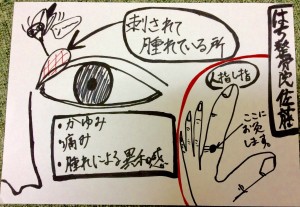 はち整骨院 佐藤
刺されて
腫れている所
人指し指
ここに
お灸
します。
・かゆみ
・痛み
・腫れによる異和感